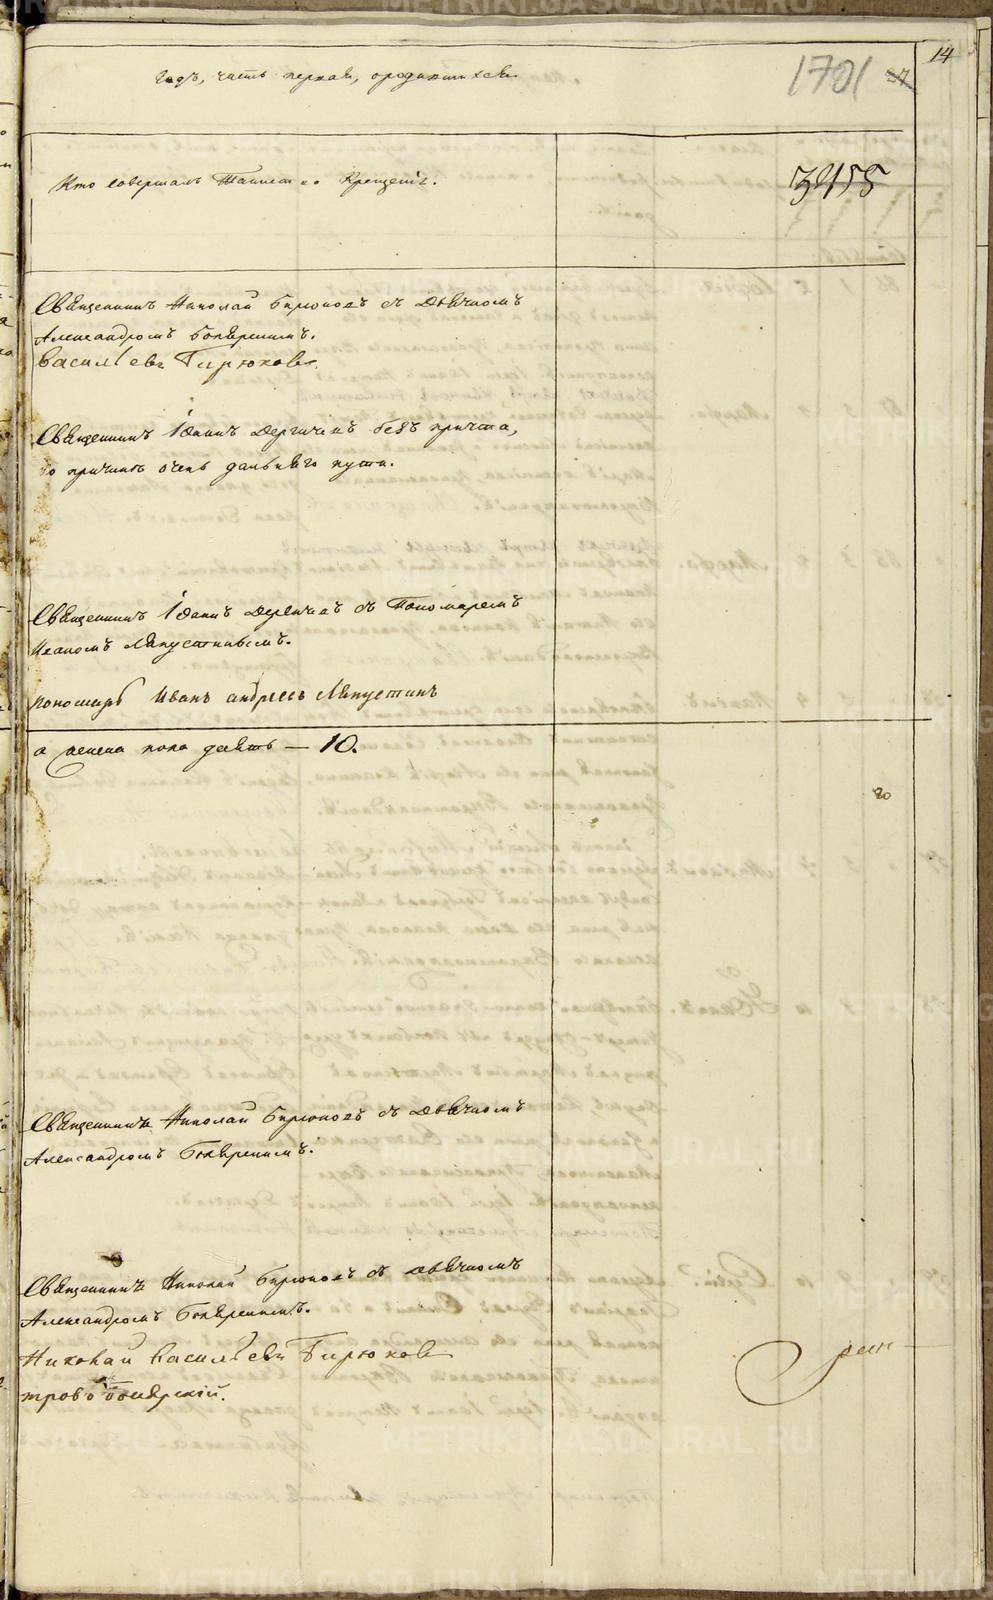 14
годъ, часть первая, о родившихся
1701
27
Кто совершалъ Таинство Крещенія.
3455
Священникъ Николай Бирюковъ съ Дьячкомъ
Александромъ Боярскимъ.
Васильевъ Бирюковъ
Священникъ Іоаннъ Дергачевъ безъ причта,
по причинѣ очень дальняго пути.
Священникъ Іоаннъ Дергачевъ съ Пономаремъ
Иваномъ Ляпустинымъ.
пономарь Иванъ Андреевъ Ляпустинъ
а женска пола девять — 10.
го
Священникъ Николай Бирюковъ съ Дьячкомъ
Александромъ Боярскимъ.
Священникъ Николай Бирюковъ съ дьячкомъ
Александромъ Боярскимъ.
Николай Васильевъ Бирюковъ
Боярскій.